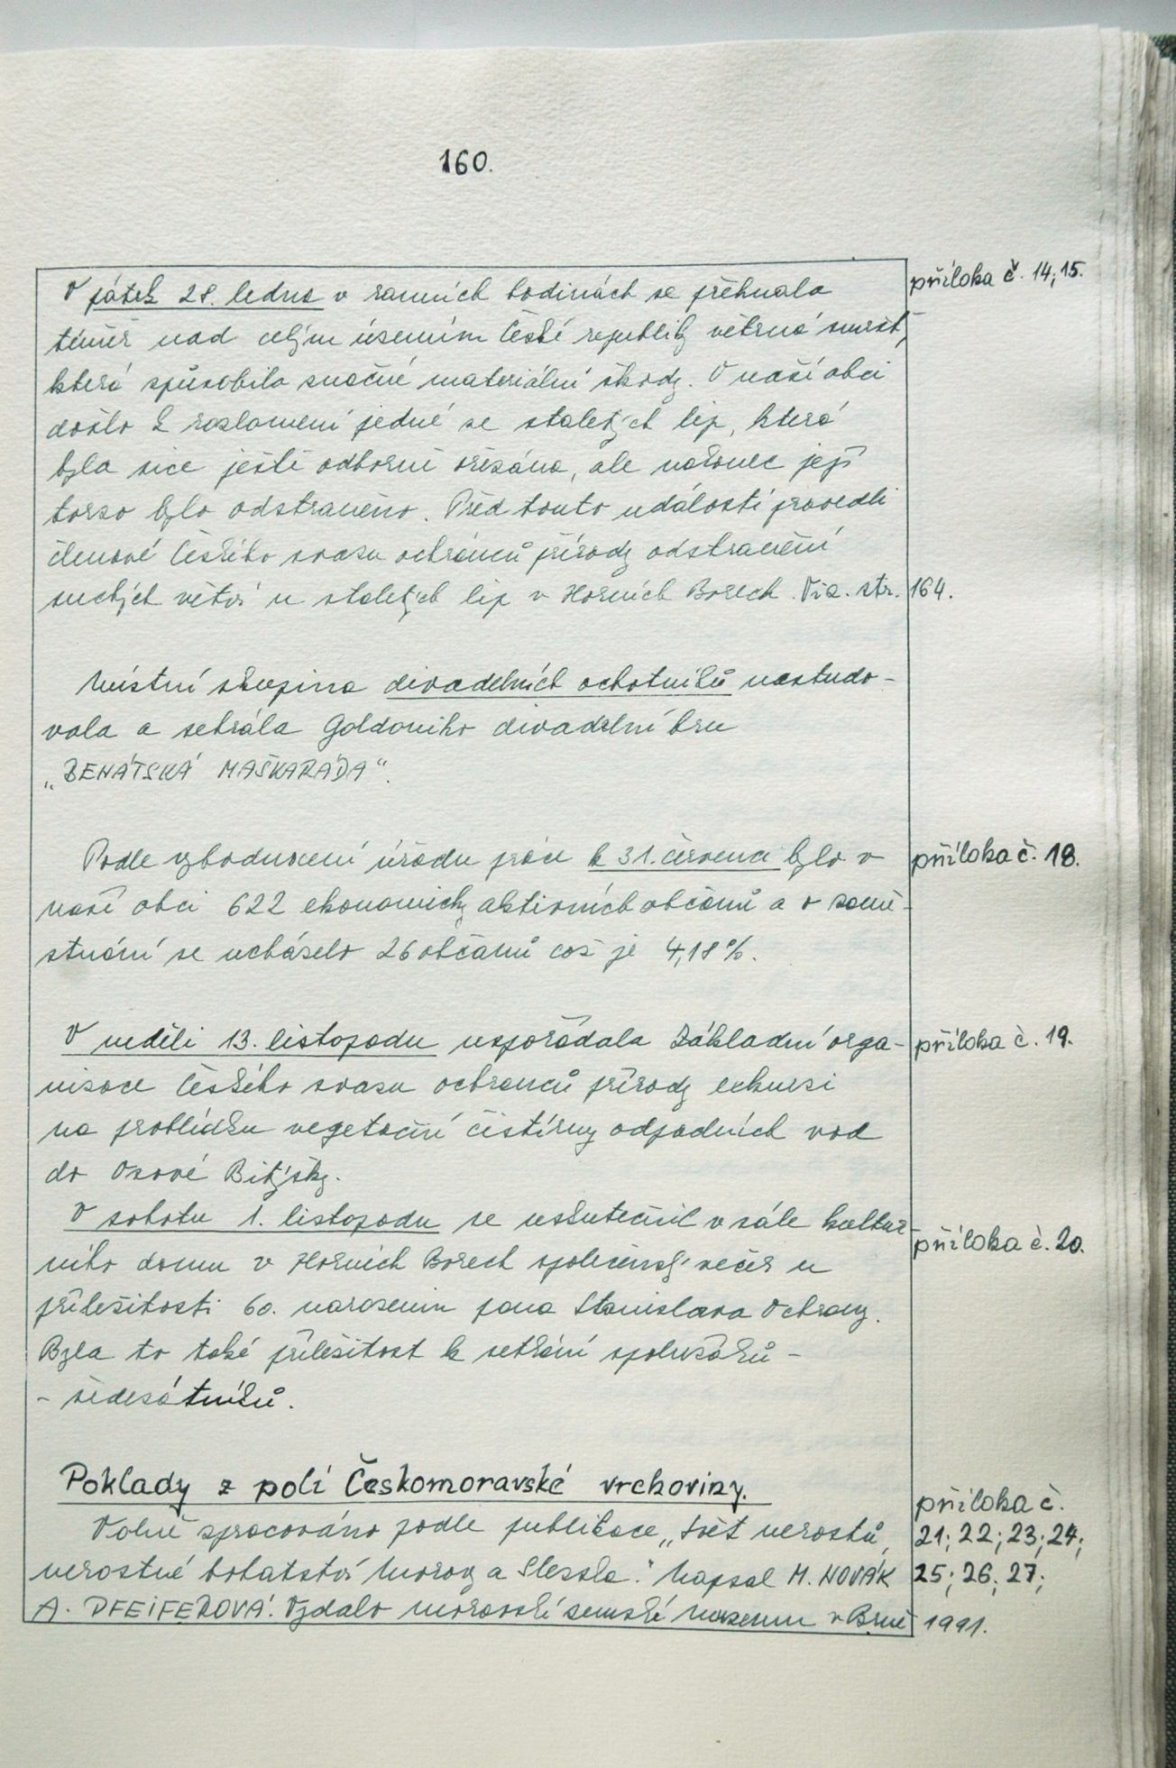 160.
V pátek 28. ledna v ranních hodinách se přehnala
příloha č. 14, 15.
téměř nad celým územím České republiky větrná smršť,
která způsobila značné materiální škody. V naší obci
došlo k rozlomení jedné ze staletých lip, která
byla sice ještě odborně ořezána, ale nakonec její
torzo bylo odstraněno. Před touto událostí provedli
členové Českého svazu ochránců přírody odstranění
suchých větví u staletých lip v Horních Borech. Viz. str. 164.
Místní skupina divadelních ochotníků nastudo-
vala a sehrála Goldoniho divadelní hru
„BENÁTSKÁ MAŠKARÁDA“.
Podle vyhodnocení úřadu práce k 31. červenci bylo v
příloha č. 18.
naší obci 622 ekonomicky aktivních občanů a o zamě-
stnání se ucházelo 26 občanů což je 4,18%.
V neděli 13. listopadu uspořádala Základní orga-
příloha č. 19.
nizace Českého svazu ochránců přírody exkurzi
na prohlídku vegetační čistírny odpadních vod
do Osové Bitýšky.
V sobotu 1. listopadu se uskutečnil v sále kultur-
příloha č. 20.
ního domu v Horních Borech společenský večer u
příležitosti 60. narozenin pana Stanislava Ochrany.
Byla to také příležitost k setkání spolužáků -
- šedesátníků.
Poklady z polí Českomoravské vrchoviny.
příloha č.
Volně zpracováno podle publikace „Svět nerostů,
21; 22; 23; 24;
nerostné bohatství Moravy a Slezska.“ Napsal M. NOVÁK
25; 26; 27;
A. PFEIFEROVÁ. Vydalo moravské zemské muzeum v Brně
1991.